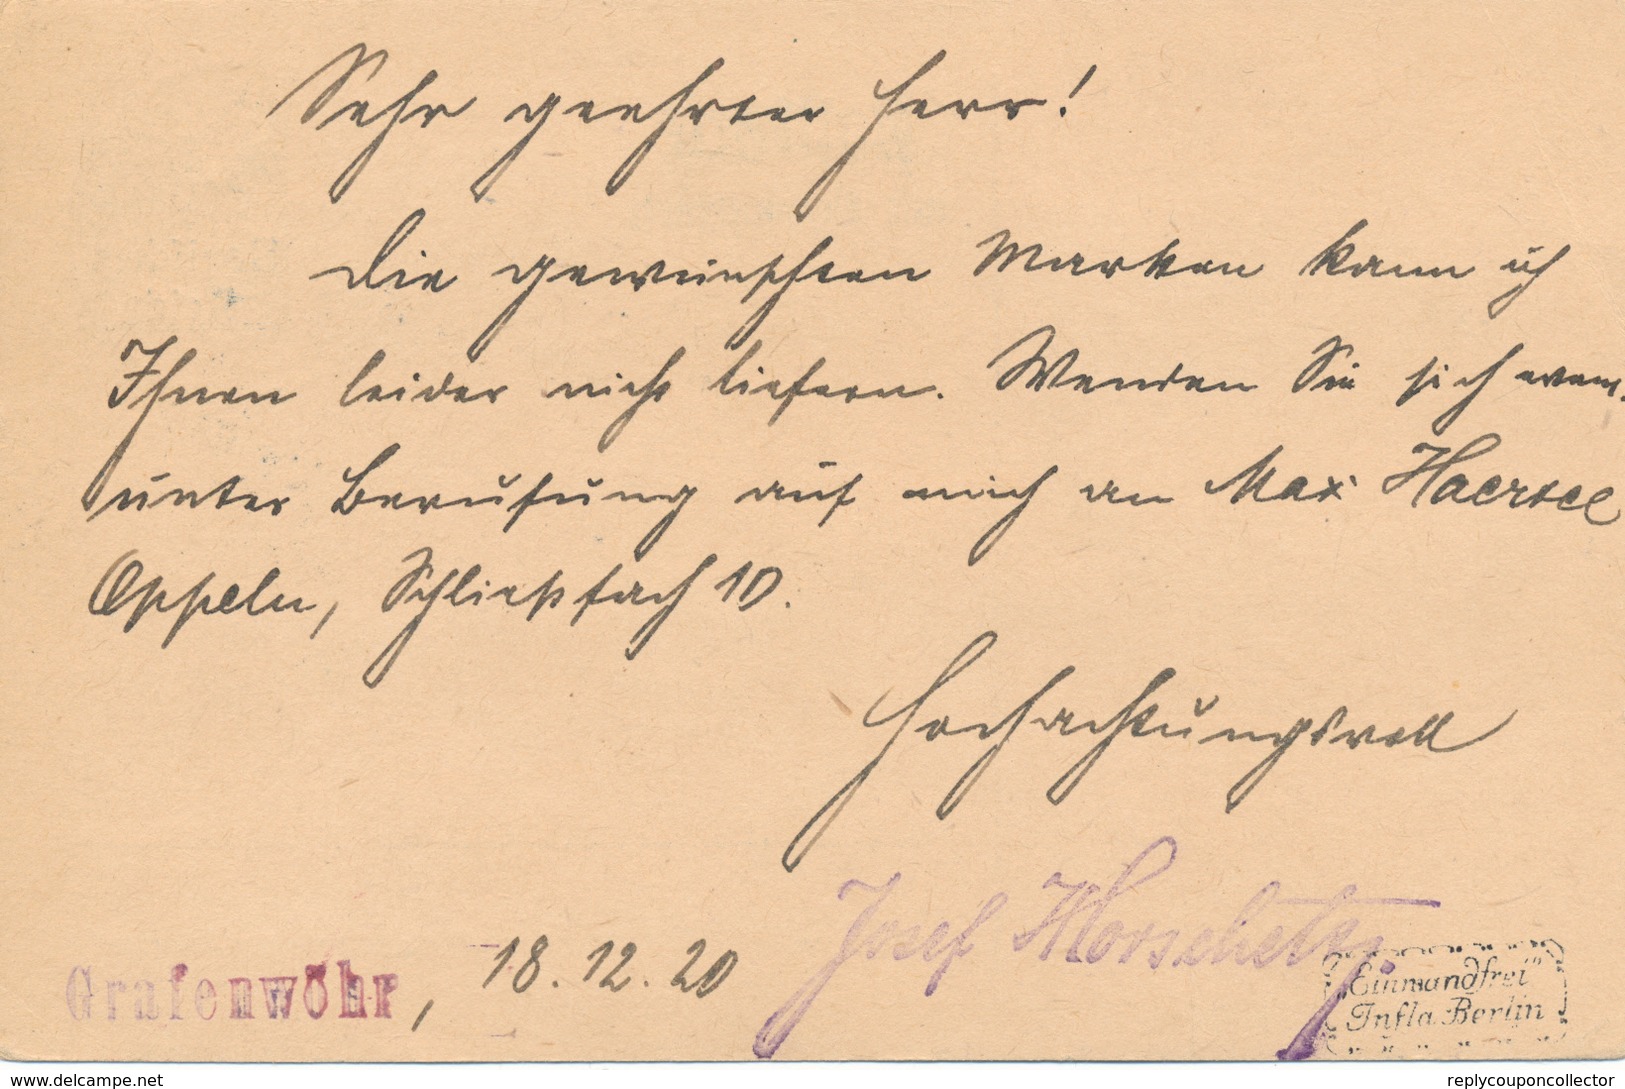 Sehr geehrter Herr!
Die gewünschten Marken kann ich
Ihnen leider nicht liefern. Wenden Sie sich even.
unter Berufung auf mich an Max Haertel
Oppeln, Schließfach 10.
Hochachtungsvoll
Josef
Grafenwöhr, 18.12.20
"Einwandfrei"
Infla Berlin
www.delcampe.net
replycouponcollector